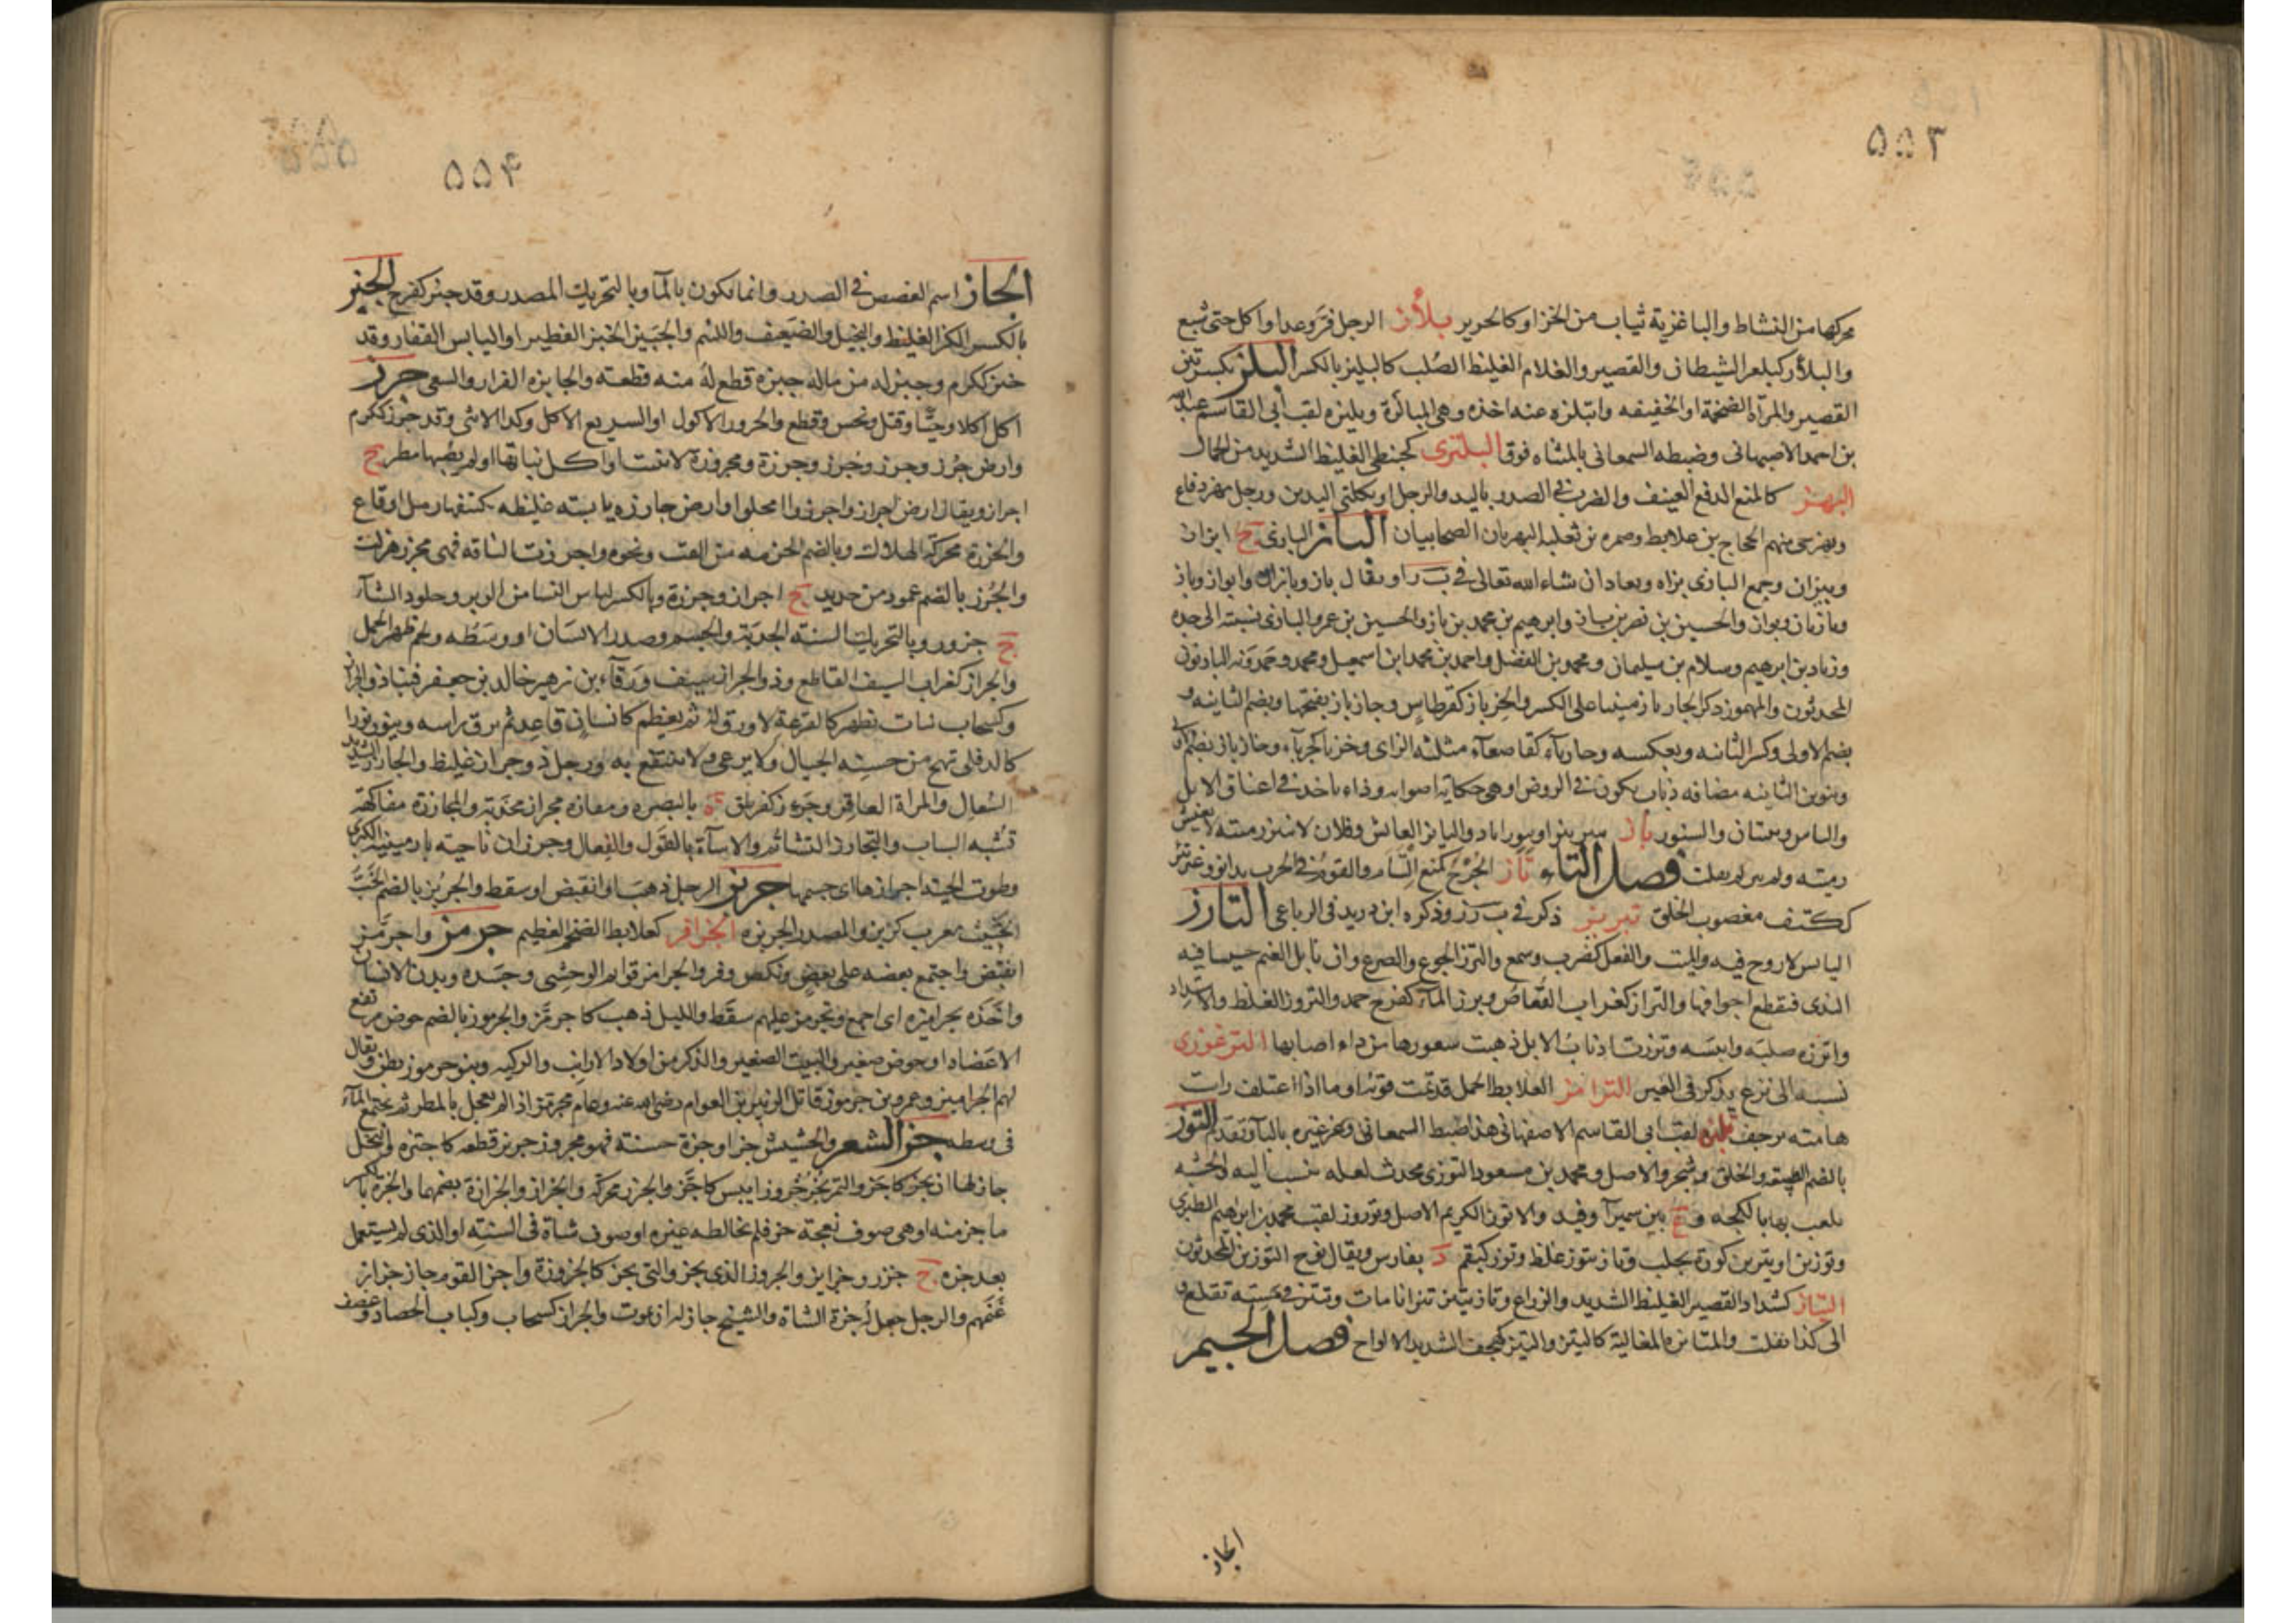 ۵۵۳
محركها من النشاط والباغزية ثياب من الخز او كالحرير بلأز الرجل فر وعدا واكل حتى شبع
والبلأز كبلعز الشيطان والقصير والغلام الغليظ الصلب كالبليز بالكسر البلز بكسرتين
القصير والمرأة الضخمة او الخفيفه وابتلزه عنه اخذه وهى المبالزة وبليزه لقب أبى القاسم عبدالله
بن احمد الاصبهانى وضبطه السمعانى بالمثناه فوق البلنزى كحبنطى الغليظ الشديد من الجمال
البهز كالمنع الدفع العنيف والضرب فى الصدر باليد والرجل او بكلتى اليدين ورجل مبهز دفاع
وبهز حى منهم الحجاج بن علابط وضمره بن ثعلبه البهزيان الصحابيان الباز البازى ج ابواز
وبيزان وجمع البازى بزاه ويعاد ان شاء الله تعالى فى ب ز او يقال باز وبازان وابواز وباز
وبازيان وبواز والحسين بن نصر بن باز وابرهيم بن محمد بن باز والحسين بن عمر والبازى نسبته الى جده
وزياد بن ابرهيم وسلام بن سليمان ومحمد بن الفضل واحمد بن محمد ابن اسمعيل ومحمد وحمدويه البازيون
المحدثون والمهموز ذكر الخازباز مبنيا على الكسر والخزباز كقرطاس وخازباز بفتحها وبضم الثانيه و
بضم الاولى وكسر الثانيه وبعكسه وخازباء كقاصعاء مثلثه الزاى وخزباء كجرباء وخازباز بضم الاولى
وتنوين الثانيه مضافه ذباب يكون فى الروض او هى حكايه اصواته وداء ياخذ فى اعناق الابل
والناس ونبتان والسنور باز يبيز بيزا وبيوزا باد والبايز العائش وفلان لا تبيز رميته لا يعيش
رميته ولم يبز لم يفلت فصل التاء تأز الجرح كمنع التأم والقوم فى الحرب تدانوا وعير تئز
ككتف معصوب الخلق تبريز ذكر فى ب ر ز وذكره ابن دريد فى الرباعى التارز
اليابس لا روح فيه والميت والفعل كضرب وسمع والترز الجوع والصرع وان تأكل الغنم حشيشا فيه
الندى فتقطع اجوافها والتراز كغراب القعاص وترز الماء كفرح جمد والتروز الغلظ والاشتداد
واترزه صلبه وايبسه وترزت اذناب الابل ذهبت شعورها من داء اصابها الترعوزى
نسبه الى ترع يذكر فى العين الترامز كعلابط الجمل قد تمت قوته او ما اذا اعتلف رايت
هامته ترجف تليزه لقب ابى القاسم الاصفهانى هذا ضبط السمعانى وعن غيره بالباء وتقدم التوز
بالضم الطبيعة والخلق وشجر والاصل ومحمد بن مسعود التوزى محدث لعله نسب اليه والخشبه
يلعب بها بالكجه وع بين سميراء وفيد والاتوز الكريم الاصل وتوزوز لقب محمد بن ابراهيم الطبرى
وتوزين او تيزين كورة بحلب وتاز يتوز غلظ وتوز كبقم د بفارس ويقال توج التوزيون المحدثون
التياز كشداد القصير الغليظ الشديد والزراع وتاز يتيز تيزانا مات وتتيز فى مشيته تقلع و
الى كذا تفلت والمتايزه المغالبة كالتيز والتيز كهجف الشديد الالواح فصل الجيم
الجاز
۵۵۴
الجاز اسم الغصص فى الصدر وانما يكون بالماء وبالتحريك المصدر وقد جئز كفرح الجبز
بالكسر الكز الغليظ والبخيل والضعيف واللئيم والجبيز الخبز الفطير او اليابس القفار وقد
جبز ككرم وجبز له من ماله جبزة قطع له منه قطعة والجابزه الفرار والسعى جرز
اكل اكلا وحيا وقتل ونخس وقطع والجروز الاكول او السريع الاكل وكذا الانثى وقد جرز ككرم
وارض جُرُز وجرز وجَرَز وجرزة ومجروزة لا تنبت او اكل نباتها او لم يصبها مطر ج
اجراز ويقال ارض اجراز واجرزوا امحلوا وارض جارزه يابسته غليظه يكتنفها رمل او قاع
والجرزة محركة الهلاك وبالضم الحزمه من القت ونحوه واجرزت الناقه فهى مجرز هزلت
والجُرُز بالضم عمود من حديد ج اجراز وجرزة وبالكسر لباس النسا من الوبر وجلود الشاء
ج جزور وبالتحريك السنة الجدبة والجسم وصدر الانسان او وسطه ولحم ظهر الجمل
والجراز كغراب السيف القاطع وذو الجراز سيف ورقاء بن زهير خالد بن جعفر فنبا ذو الجراز
وكسحاب نبات يظهر كالقرعة لا ورق له ثم يعظم كانسان قاعد ثم يرق راسه وينور نورا
كالدفلى تهج من حسنه الجبال ولا يرعى ولا ينتفع به ورجل ذو جراز غليظ والجارز الشديد
السعال والمراة العاقر وجرزة كفرطق ة بالبصره ومفازه مجراز مجدبة والمجارزة مفاكهة
تشبه السباب والتجارز التشاتم والاسأة بالقول والفعال وجرزان ناحيته بارمينية الكبرى
وطوت الحية اجرازها اى جسمها جربز الرجل ذهب او انقبض او سقط والجربز بالضم الخب
الخبيث معرب كربز والمصدر الجربزه الجرافز كعلابط الضخم العظيم جرمز واجرمز
انقبض واجتمع بعضه على بعض ونكص وفر والجراميز قوايم الوحشى وجسده وبدن الانسان
واخذه بجراميزه اى اجمع وتجرمز عليهم سقط والليل ذهب كاجرمز والجرموز بالضم حوض مرتفع
الاعضاد او حوض صغير والبيت الصغير والذكر من اولاد الارانب والركيه وبنو جرموز بطن ويقال
لهم الجراميز وعمرو بن جرموز قاتل الزبير بن العوام رضى الله عنه وعام مجرمز اذا لم يعجل بالمطر ثم يجتمع الماء
فى وسطه جز الشعر والحشيش جزا وجزة حسنة فهو مجزوز جزيز قطعه كاجتزه والنخل
جازلها ان يجز كاجز والتمر يجز جزوزا يبس كاجز والجزز محركة والجزاز والجزازة بضمهما والجزة بالكسر
ما جز منه او هى صوف نعجة جز فلم يخالطه غيره او صوف شاة فى السنه او الذى لم يستعمل
بعد جزه ج جزز وجزايز والجزوز الذى يجز والتى يجز كالجزوزة واجز القوم جاز جزاز
غنمهم والرجل جعل له جزة الشاة والشيخ جاز له ان يموت والجزاز كسحاب وكتاب الحصاد وعصف